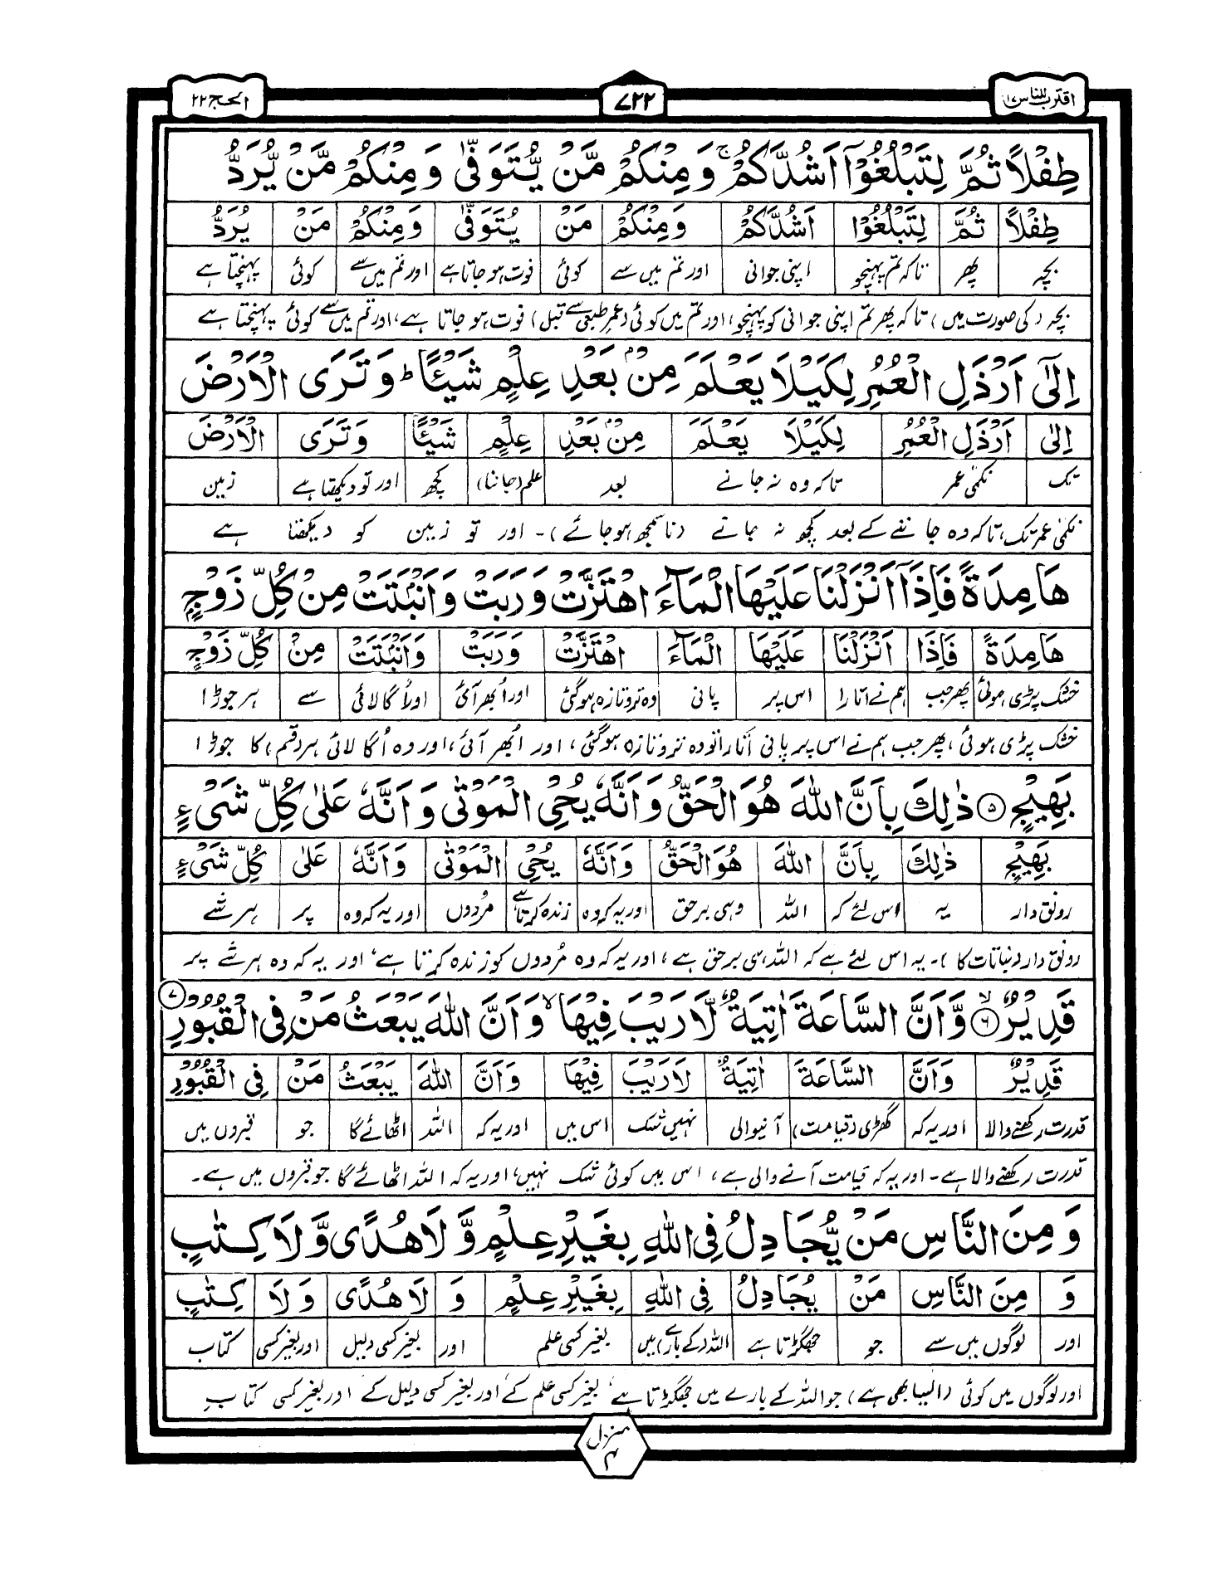 اقترب للناس ۱۷
۷۲۲
الحج ۲۲
طِفْلًا ثُمَّ لِتَبْلُغُوْۤا اَشُدَّكُمْ ۚ وَمِنْكُمْ مَّنْ یُّتَوَفّٰی وَمِنْكُمْ مَّنْ یُّرَدُّ
طِفْلًا ثُمَّ لِتَبْلُغُوْا اَشُدَّكُمْ وَمِنْكُمْ مَنْ یُتَوَفّٰی وَمِنْكُمْ مَنْ یُرَدُّ
بچہ پھر تاکہ تم پہنچو اپنی جوانی اور تم میں سے کوئی فوت ہو جاتا ہے اور تم میں سے کوئی پہنچتا ہے
بچہ (کی صورت میں) تاکہ پھر تم اپنی جوانی کو پہنچو، اور تم میں کوئی (عمر طبعی سے قبل) فوت ہو جاتا ہے، اور تم میں سے کوئی پہنچتا ہے
اِلٰۤی اَرْذَلِ الْعُمُرِ لِكَیْلَا یَعْلَمَ مِنْۢ بَعْدِ عِلْمٍ شَیْـًٔا ؕ وَتَرَی الْاَرْضَ
اِلٰی اَرْذَلِ الْعُمُرِ لِكَیْلَا یَعْلَمَ مِنْۢ بَعْدِ عِلْمٍ شَیْـًٔا وَتَرَی الْاَرْضَ
تک نکمی عمر تاکہ وہ نہ جانے بعد علم (جاننا) کچھ اور تو دیکھتا ہے زمین
نکمی عمر تک، تاکہ وہ جاننے کے بعد کچھ نہ جانے (ناسمجھ ہو جائے)۔ اور تو زمین کو دیکھتا ہے
هَامِدَةً فَاِذَاۤ اَنْزَلْنَا عَلَیْهَا الْمَآءَ اهْتَزَّتْ وَرَبَتْ وَاَنْۢبَتَتْ مِنْ كُلِّ زَوْجٍۭ
هَامِدَةً فَاِذَا اَنْزَلْنَا عَلَیْهَا الْمَآءَ اهْتَزَّتْ وَرَبَتْ وَاَنْۢبَتَتْ مِنْ كُلِّ زَوْجٍۭ
خشک پڑی ہوئی پھر جب ہم نے اتارا اس پر پانی وہ تروتازہ ہوگئی اور ابھر آئی اور اُگا لائی سے ہر جوڑا
خشک پڑی ہوئی، پھر جب ہم نے اس پر پانی اتارا تو وہ تروتازہ ہوگئی، اور ابھر آئی، اور وہ اُگا لائی ہر (قسم) کا جوڑا
بَهِیْجٍ ۝۵ ذٰلِكَ بِاَنَّ اللّٰهَ هُوَ الْحَقُّ وَاَنَّهٗ یُحْیِ الْمَوْتٰی وَاَنَّهٗ عَلٰی كُلِّ شَیْءٍ
بَهِیْجٍ ذٰلِكَ بِاَنَّ اللّٰهَ هُوَ الْحَقُّ وَاَنَّهٗ یُحْیِ الْمَوْتٰی وَاَنَّهٗ عَلٰی كُلِّ شَیْءٍ
رونق دار یہ اس لئے کہ اللہ وہی برحق اور یہ کہ وہ زندہ کرتا ہے مُردوں اور یہ کہ وہ پر ہر شے
رونق دار (نباتات کا)۔ یہ اس لئے ہے کہ اللہ ہی برحق ہے، اور یہ کہ وہ مُردوں کو زندہ کرتا ہے، اور یہ کہ وہ ہر شے پر
قَدِیْرٌ ۝۶ۙ وَّاَنَّ السَّاعَةَ اٰتِیَةٌ لَّا رَیْبَ فِیْهَا ۙ وَاَنَّ اللّٰهَ یَبْعَثُ مَنْ فِی الْقُبُوْرِ ۝۷
قَدِیْرٌ وَاَنَّ السَّاعَةَ اٰتِیَةٌ لَا رَیْبَ فِیْهَا وَاَنَّ اللّٰهَ یَبْعَثُ مَنْ فِی الْقُبُوْرِ
قدرت رکھنے والا اور یہ کہ گھڑی (قیامت) آنیوالی نہیں شک اس میں اور یہ کہ اللہ اٹھائے گا جو قبروں میں
قدرت رکھنے والا ہے۔ اور یہ کہ قیامت آنے والی ہے، اس میں کوئی شک نہیں، اور یہ کہ اللہ اٹھائے گا جو قبروں میں ہے۔
وَمِنَ النَّاسِ مَنْ یُّجَادِلُ فِی اللّٰهِ بِغَیْرِ عِلْمٍ وَّلَا هُدًی وَّلَا كِتٰبٍ
وَ مِنَ النَّاسِ مَنْ یُجَادِلُ فِی اللّٰهِ بِغَیْرِ عِلْمٍ وَ لَا هُدًی وَلَا كِتٰبٍ
اور لوگوں میں سے جو جھگڑتا ہے اللہ (کے بارے) میں بغیر کسی علم اور بغیر کسی دلیل اور بغیر کسی کتاب
اور لوگوں میں کوئی (ایسا بھی ہے) جو اللہ کے بارے میں جھگڑتا ہے، بغیر کسی علم کے، اور بغیر کسی دلیل کے اور بغیر کسی کتاب
منزل ۴